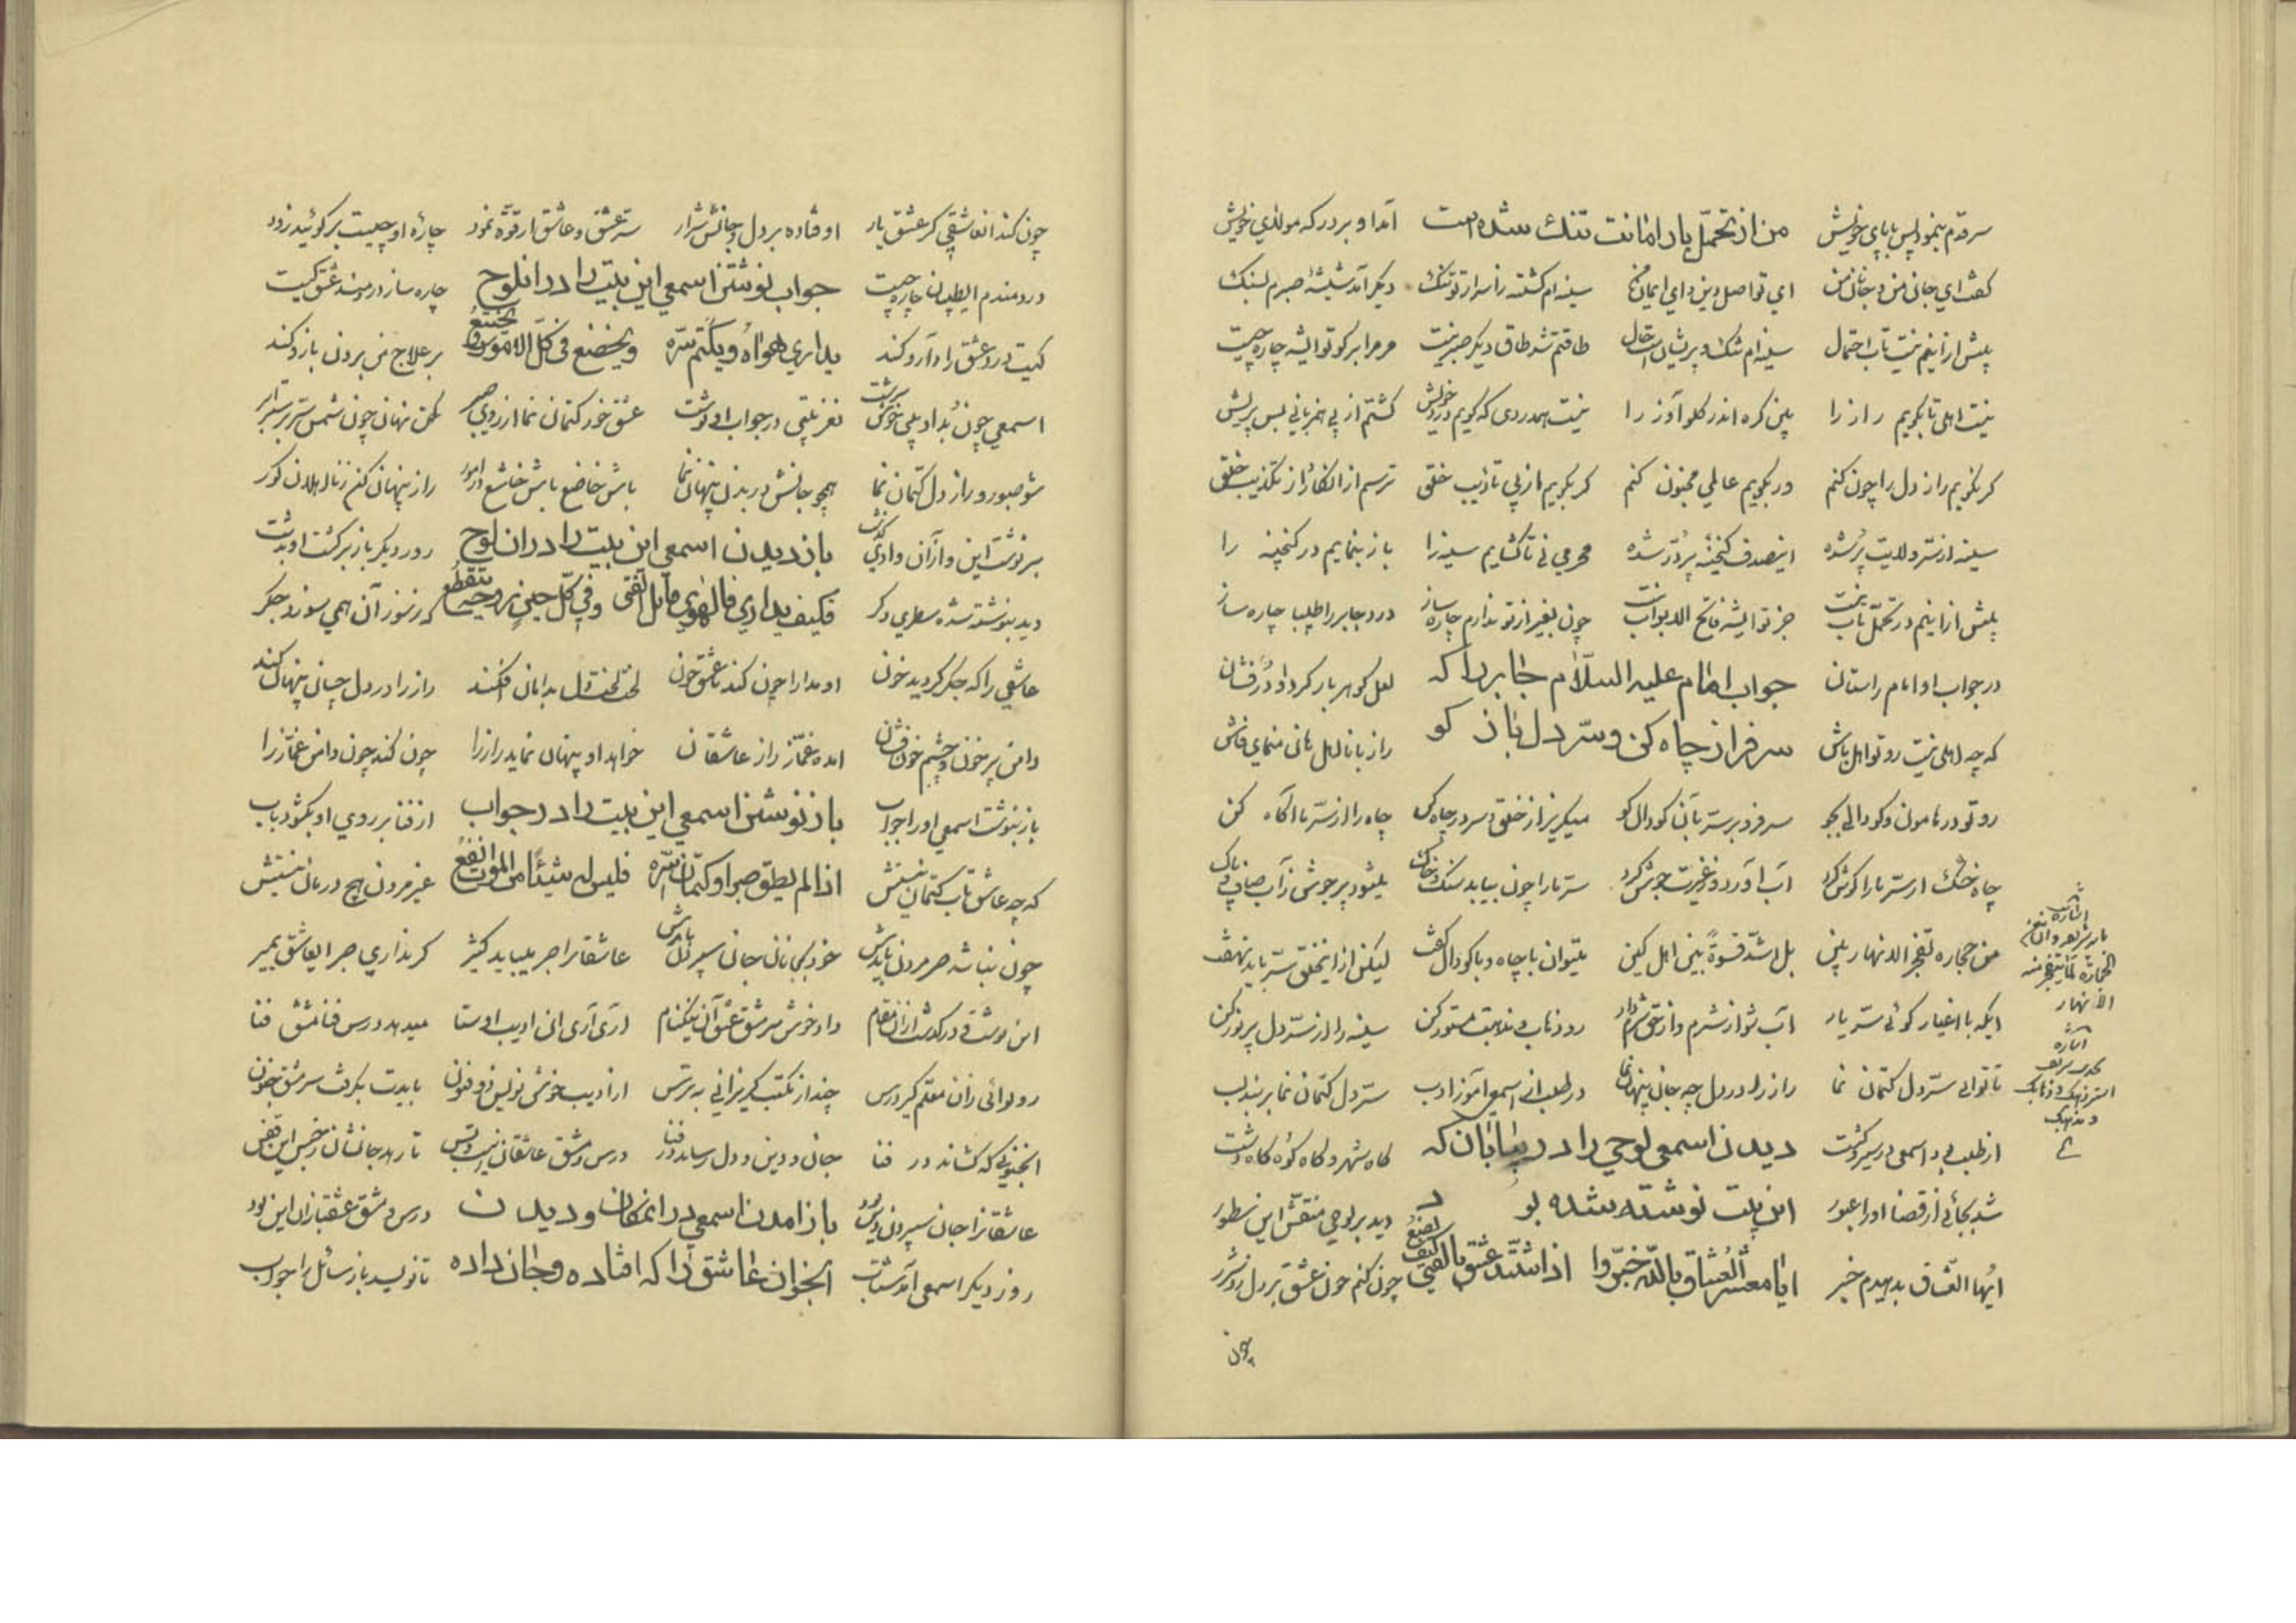 سر قدم بنمود پس با پای خویش من از تحمل بار امانت تنك شده است آمد او بر درکه مولای خویش
کفت ای جان من و جانان من ای تو اصل دین و ای ایمان من سینه ام کشته ز اسرار تو تنك دیکر آمد شیشهٔ صبرم بسنك
بیش ازاینم نیست تاب احتمال سینه ام تنك و پریشان است حال طاقتم شد طاق دیکر صبر نیست مر مرا بر کو تو ایشه چاره چیست
نیست اهلی تا بکویم راز را بین کره اندر کلو آواز را نیست همدردی که کویم درد خویش کشتم از بی همزبانی بس پریش
کر نکویم راز دل را چون کنم ور بکویم عالمی مجنون کنم کر بکویم از پی تادیب خلق ترسم از انکار و از تکذیب خلق
سینه از سر ولایت پر شده اینصدف کنجینهٔ پر در شده محرمی نی تا کشایم سینه را باز بنمایم در کنجینه را
بیش ازاینم در تحمل تاب نیست جز تو ایشه فاتح الابواب نیست چون بغیر از تو ندارم چاره ساز درد جابر را طبیبا چاره ساز
در جواب او امام راستان جواب امام علیه السلام جابر را که لعل کوهر بار کرد او در فشان
که چه اهلی نیست رو تو اهل باش سر فراز چاه کن و سر دل باز کو راز با نااهل مانی منمای فاش
رو تو در هامون و کودالی بجو سر فرو بر سر بآن کودال کو میکریز از خلق و سر در چاه کن چاه را از سر ما آکاه کن
چاه خشك از سر ما را کوش کرد آب آورد و ز غیرت جوش کرد سر ما را چون بیابد سنك و خاك میشود پر جوش ز آب صاف و پاك
من حجاره تفجر الانهار بین بل اشد قسوة بین اهل کین میتوان با چاه و با کودال کفت لیکن از اینخلق سر باید نهفت
ایکه با اغیار کوئی سر یار آب شو از شرم و از حق شرم دار رو ذهاب و مذهبت مستور کن سینه را از سر دل پر نور کن
تا توانی سر دل کتمان نما راز را در دل چه جان پنهان نما در طلب از اسمعی آموز ادب سر دل کتمان نما بر بند لب
از طلب بد اسمعی در سیر و کشت دیدن اسمعی لوحی را در بیابان که کاه شهر و کاه کوه و کاه دشت
شد بجائی از قضا او را عبور این بیت نوشته شده بو د دید بر لوحی منقش این سطور
ایها العشاق بدهیدم خبر ایا معشر العشاق بالله خبروا اذا اشتد عشق بالفتی کیف یصنع چون کنم چون عشق بر دل زد شرر
اشارت بایه شریفه وان من الحجارة لما یتفجر منه الأنهار
اشاره بحدیث شریف استر ذهبك و ذهابك و مذهبك
چون
چون کند آنعاشقی کز عشق یار اوفتاده بر دل و جانش شرار سر عشق و عاشق از قوه نمود چارهٔ او چیست بر کوئید زود
دردمندم ایطبیبان چاره چیست جواب نوشتن اسمعی این بیت را در انلوح چاره ساز دردمند عشق کیست
کیست درد عشق را داروکند یداری هواه و یکتم سره و یخضع فی کل الامور و یخشع بر علاج من بردن بازو کند
اسمعی چون بد ادیبی خوش سرشت نغز بیتی در جواب او نوشت عشق خود کتمان نما از روی صبر کن نهان چون شمس سر بر سیر ابر
شو صبور و راز دل کتمان نما همچو جانش در بدن پنهان نما باش خاضع باش خاشع در امور راز پنهان کن ز نااهلان کور
بر نوشت این و از آن وادی کذشت باز دیدن اسمعی این بیت را در ان لوح روز دیکر باز بر کشت او بدشت
دید بنوشته شده سطری دکر فکیف یداری فالهوی قاتل الفتی وفی کل حین روحه یتقطع که ز سوز آن همی سوزد جکر
عاشقی را که جکر کردید خون او مدارا چون کند با عشق چون لخت لخت دل بدامان افکند راز را در دل چسان پنهان کند
دامن پر خون و چشم خون فشان امده غماز راز عاشقان خواهد او پنهان نماید راز را چون کند چون دامن غماز را
باز بنوشت اسمعی او را جواب باز نوشتن اسمعی این بیت را در جواب از فنا بر روی او بکشود باب
که چه عاشق تاب کتمان نیستش اذا لم یطق صبرا و کتمان سره فلیس له شیئا من الموت انفع غیر مردن هیچ درمان نیستش
چون نباشد صبر مردن بایدش خود بجانان جان سپردن بایدش عاشقانرا جبر میباید کثیر کر نداری صبر ایعاشق بمیر
این نوشت و در کذشت از آن مقام داد خوش سر مشق عشق آن نیکنام آری آری این ادیب اوستا میدهد درس فنا مشق فنا
رو تو ائی زان معلم کیر درس چند از مکتب کریزانی به ترس از ادیب خوش نویس ذو فنون بایدت بکرفت سر مشق جنون
انجنونی که کشاند در فنا جان و دین و دل رساند در فنا درس و مشق عاشقان اینست و بس تا رهد جانشان ز حبس این قفس
عاشقانرا جان سپردن دین بود باز امدن اسمعی در انمکان و دیدن درس و مشق عشقبازان این بود
روز دیکر اسمعی آمد شتاب انجوان عاشق را که افتاده و جان داده تا نویسد باز سائل را جواب